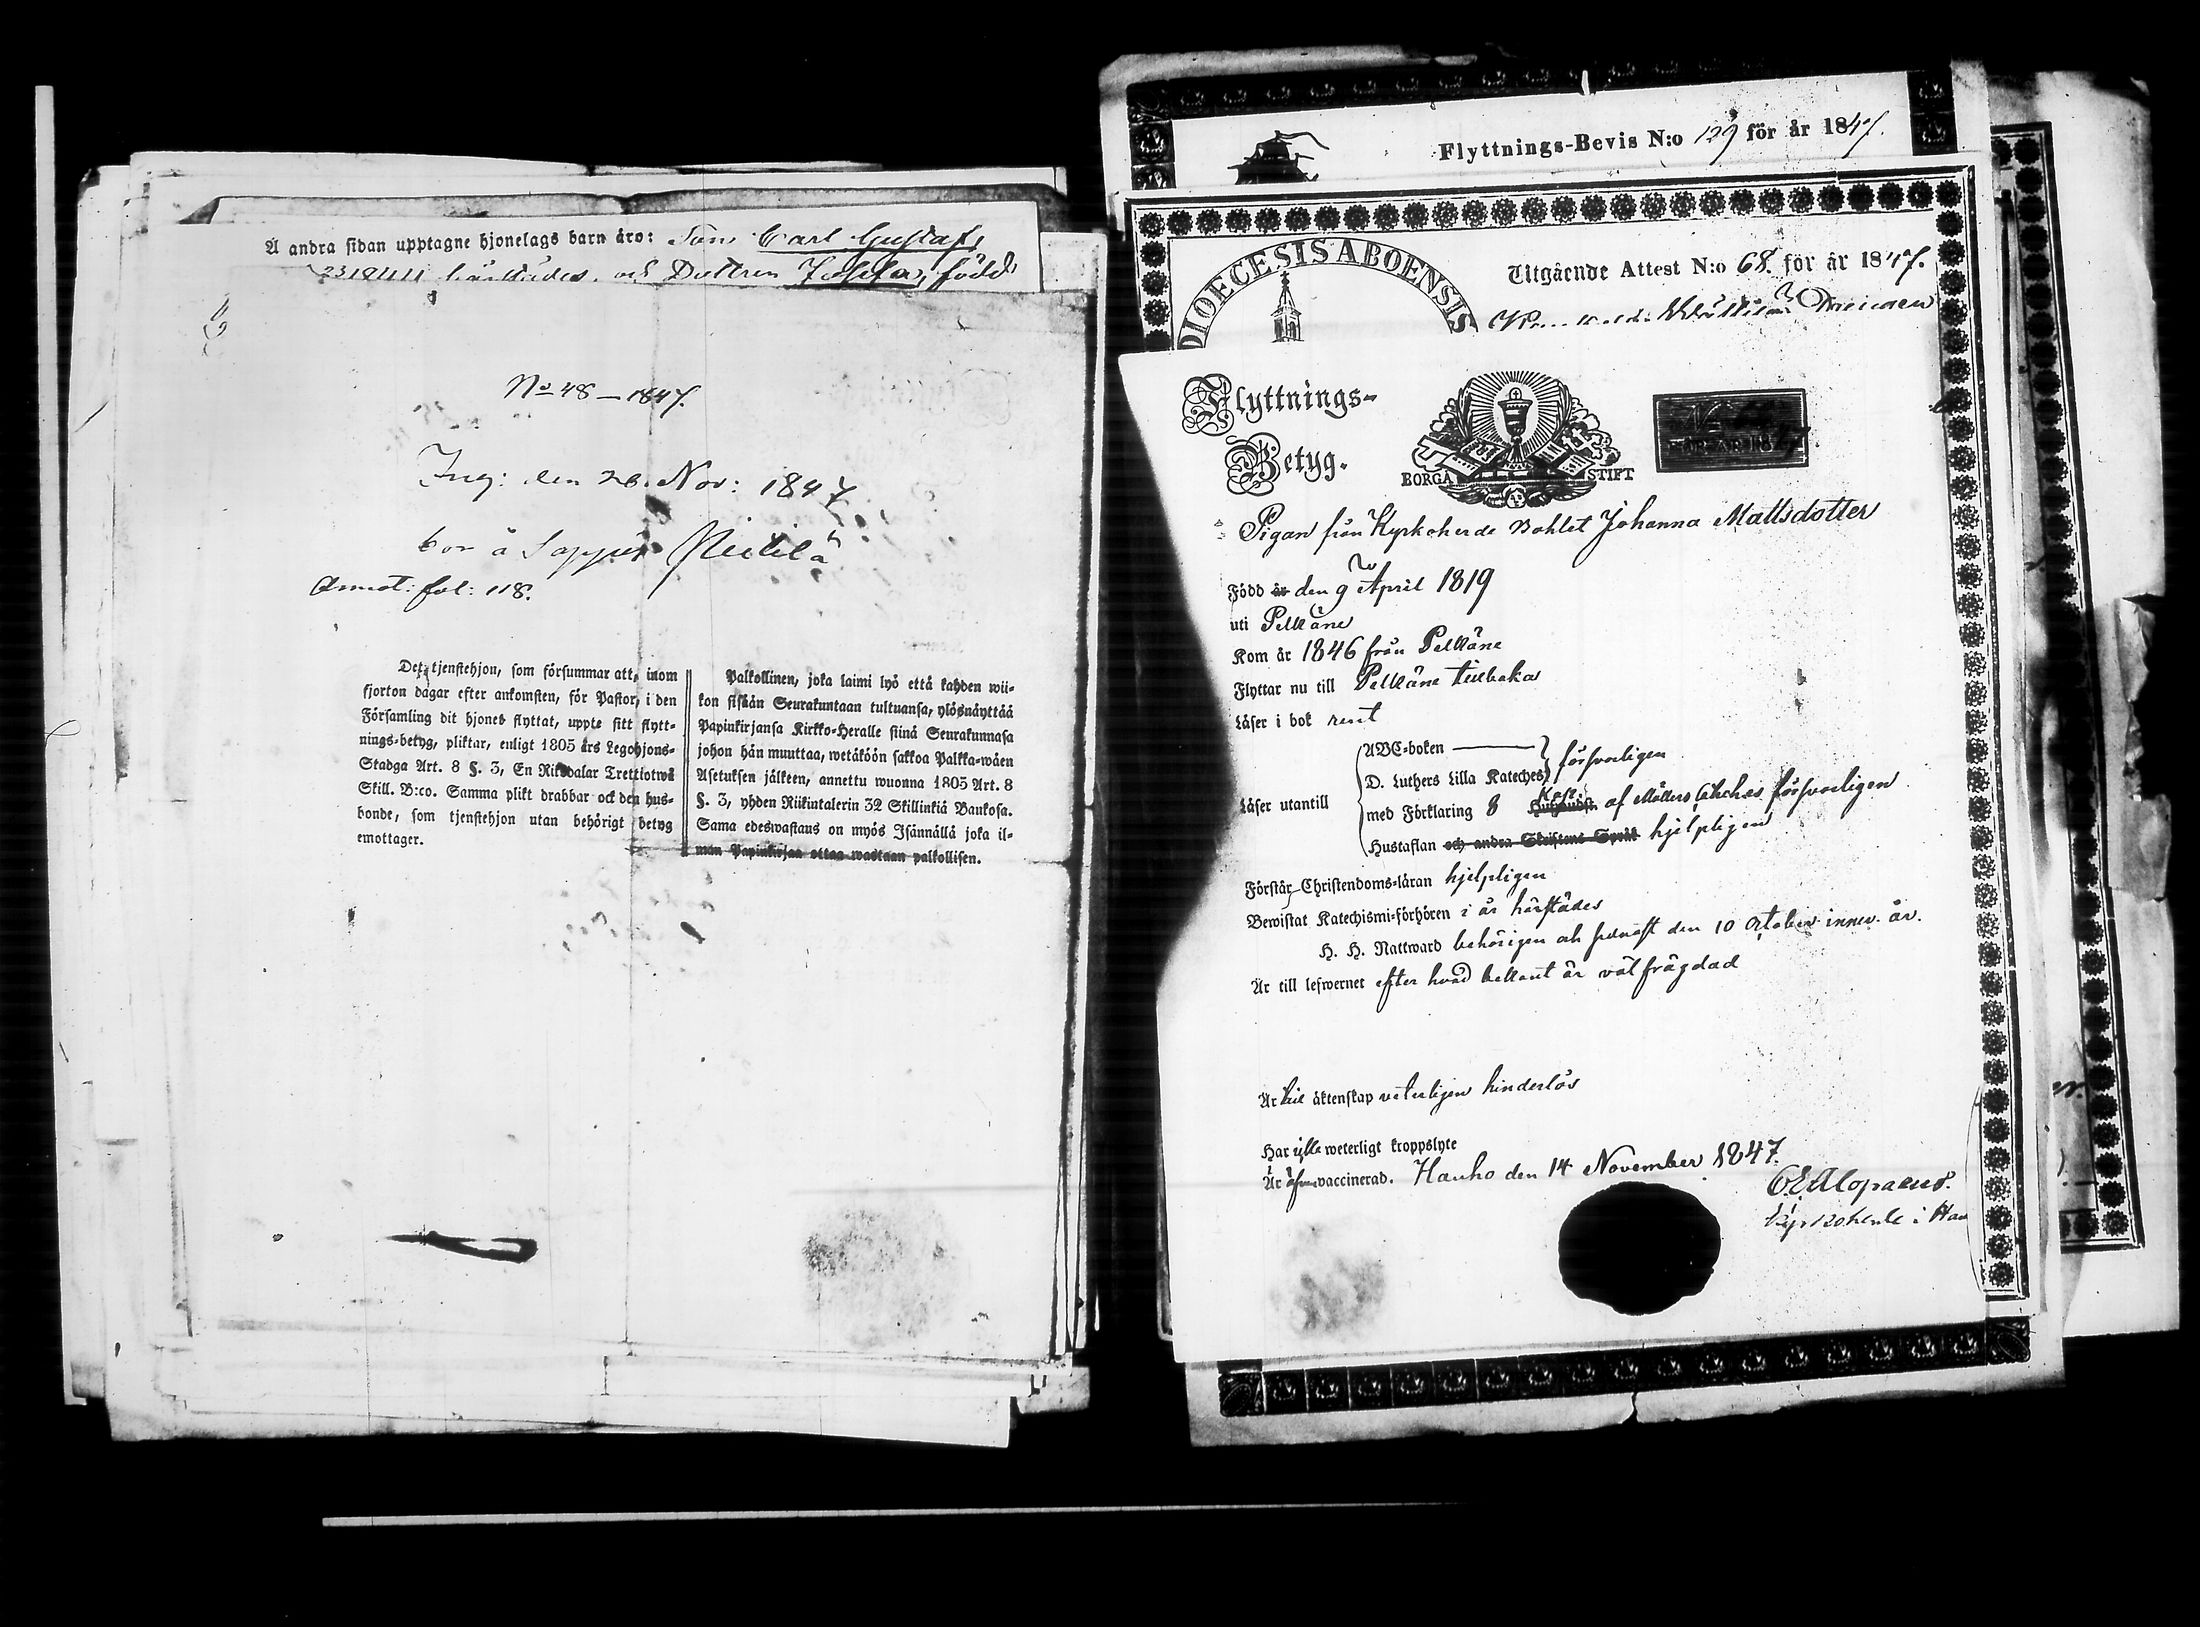 Å andra sidan upptagne hjonelags barn äro: Son Carl Gustaf,
härstädes, och Dottren född
No 48 – 1847.
Ing: den 26 Nov: 1847
bor å
Annot: fol: 118.
Det tjenstehjon, som försummar att, inom
fjorton dagar efter ankomsten, för Pastor, i den
Församling dit hjonet flyttat, uppte sitt flytt-
nings-betyg, pliktar, enligt 1805 års Legohjons-
Stadga Art. 8 §. 3, En Riksdalar Trettiotwå
Skill. B:co. Samma plikt drabbar ock den hus-
bonde, som tjenstehjon utan behörigt betyg
emottager.
Palkollinen, joka laimi lyö että kahden wii-
kon sisään Seurakuntaan tultuansa, ylösnäyttää
Papinkirjansa Kirkko-Heralle siinä Seurakunnasa
johon hän muuttaa, wetäköön sakkoa Palkka-wäen
Asetuksen jälkeen, annettu wuonna 1805 Art. 8
§. 3, yhden Riikintalerin 32 Skillinkiä Baukosa.
Sama edeswastaus on myös Isännällä joka il-
man Papinkirjaa ottaa wastaan palkollisen.
Flyttnings-Bevis N:o 129 för år 1847.
DIOECESIS ABOENSIS
Utgående Attest N:o 68. för år 1847.
Flyttnings-
Betyg.
BORGÅ STIFT
FÖR ÅR 1847
Pigan från Kyrkoherde Bohlet Johanna Mattsdotter
Född år den 9 April 1819
uti Pelkäne
Kom år 1846 från Pelkäne
Flyttar nu till Pelkäne tillbaka
Läser i bok rent
Läser utantill
ABC-boken
D. Luthers Lilla Kateches försvarligen
med Förklaring 8 af Möllers försvarligen
Hustaflan och andra Skriftens Språk hjelpligen
Förstår Christendoms-läran hjelpligen
Bewistat Katechismi-förhören i år härstädes
H. H. Nattward behörigen och senast den 10 October innev. år.
Är till lefwernet efter hvad bekant är välfrägdad
Är till äktenskap veterligen hinderlös
Har icke weterligt kroppslyte
Är äfven vaccinerad. Hauho den 14 November 1847.
C E Alopaeus.
Kyrkoherde i Hau